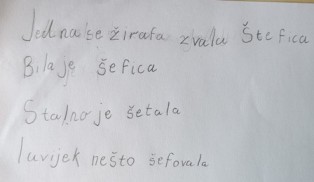 Jedna se žirafa zvala Štefica
Bila je šefica
Stalno je šetala
I uvijek nešto šefovala